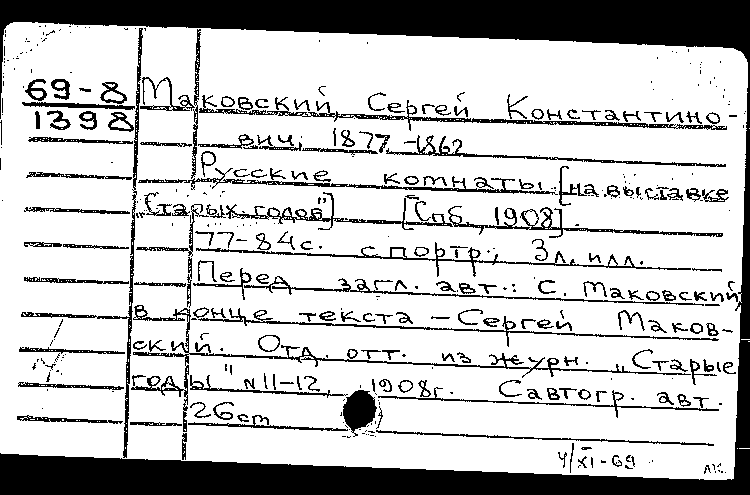 69-8 Маковский, Сергей Константино-
1398
вич, 1877-1862
Русские комнаты [на выставке
„Старых годов"] [Спб., 1908].
77-84 с. с портр.; 3 л. илл.
Перед загл. авт.: С. Маковский;
в конце текста - Сергей Маков-
ский. Отд. отт. из журн. „Старые
годы" №11-12, 1908г. С автогр. авт.
26 cm
4/XI-69